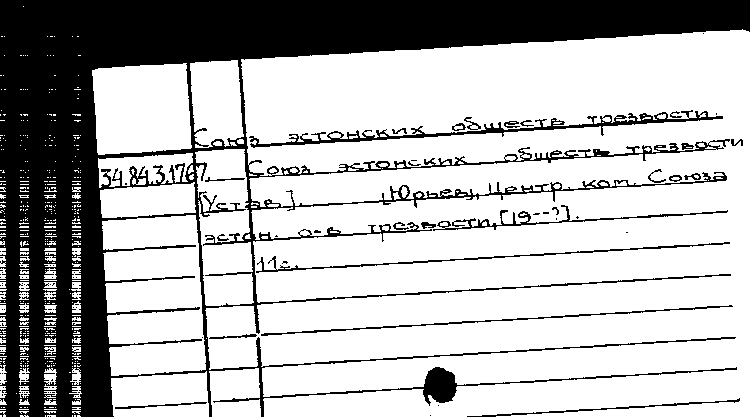 Союз эстонских обществ трезвости.
34.84.3.1767. Союз эстонских обществ трезвости
[Устав]. [Юрьев], Центр. ком. Союза
эстон. о-в трезвости, [19--?].
11с.